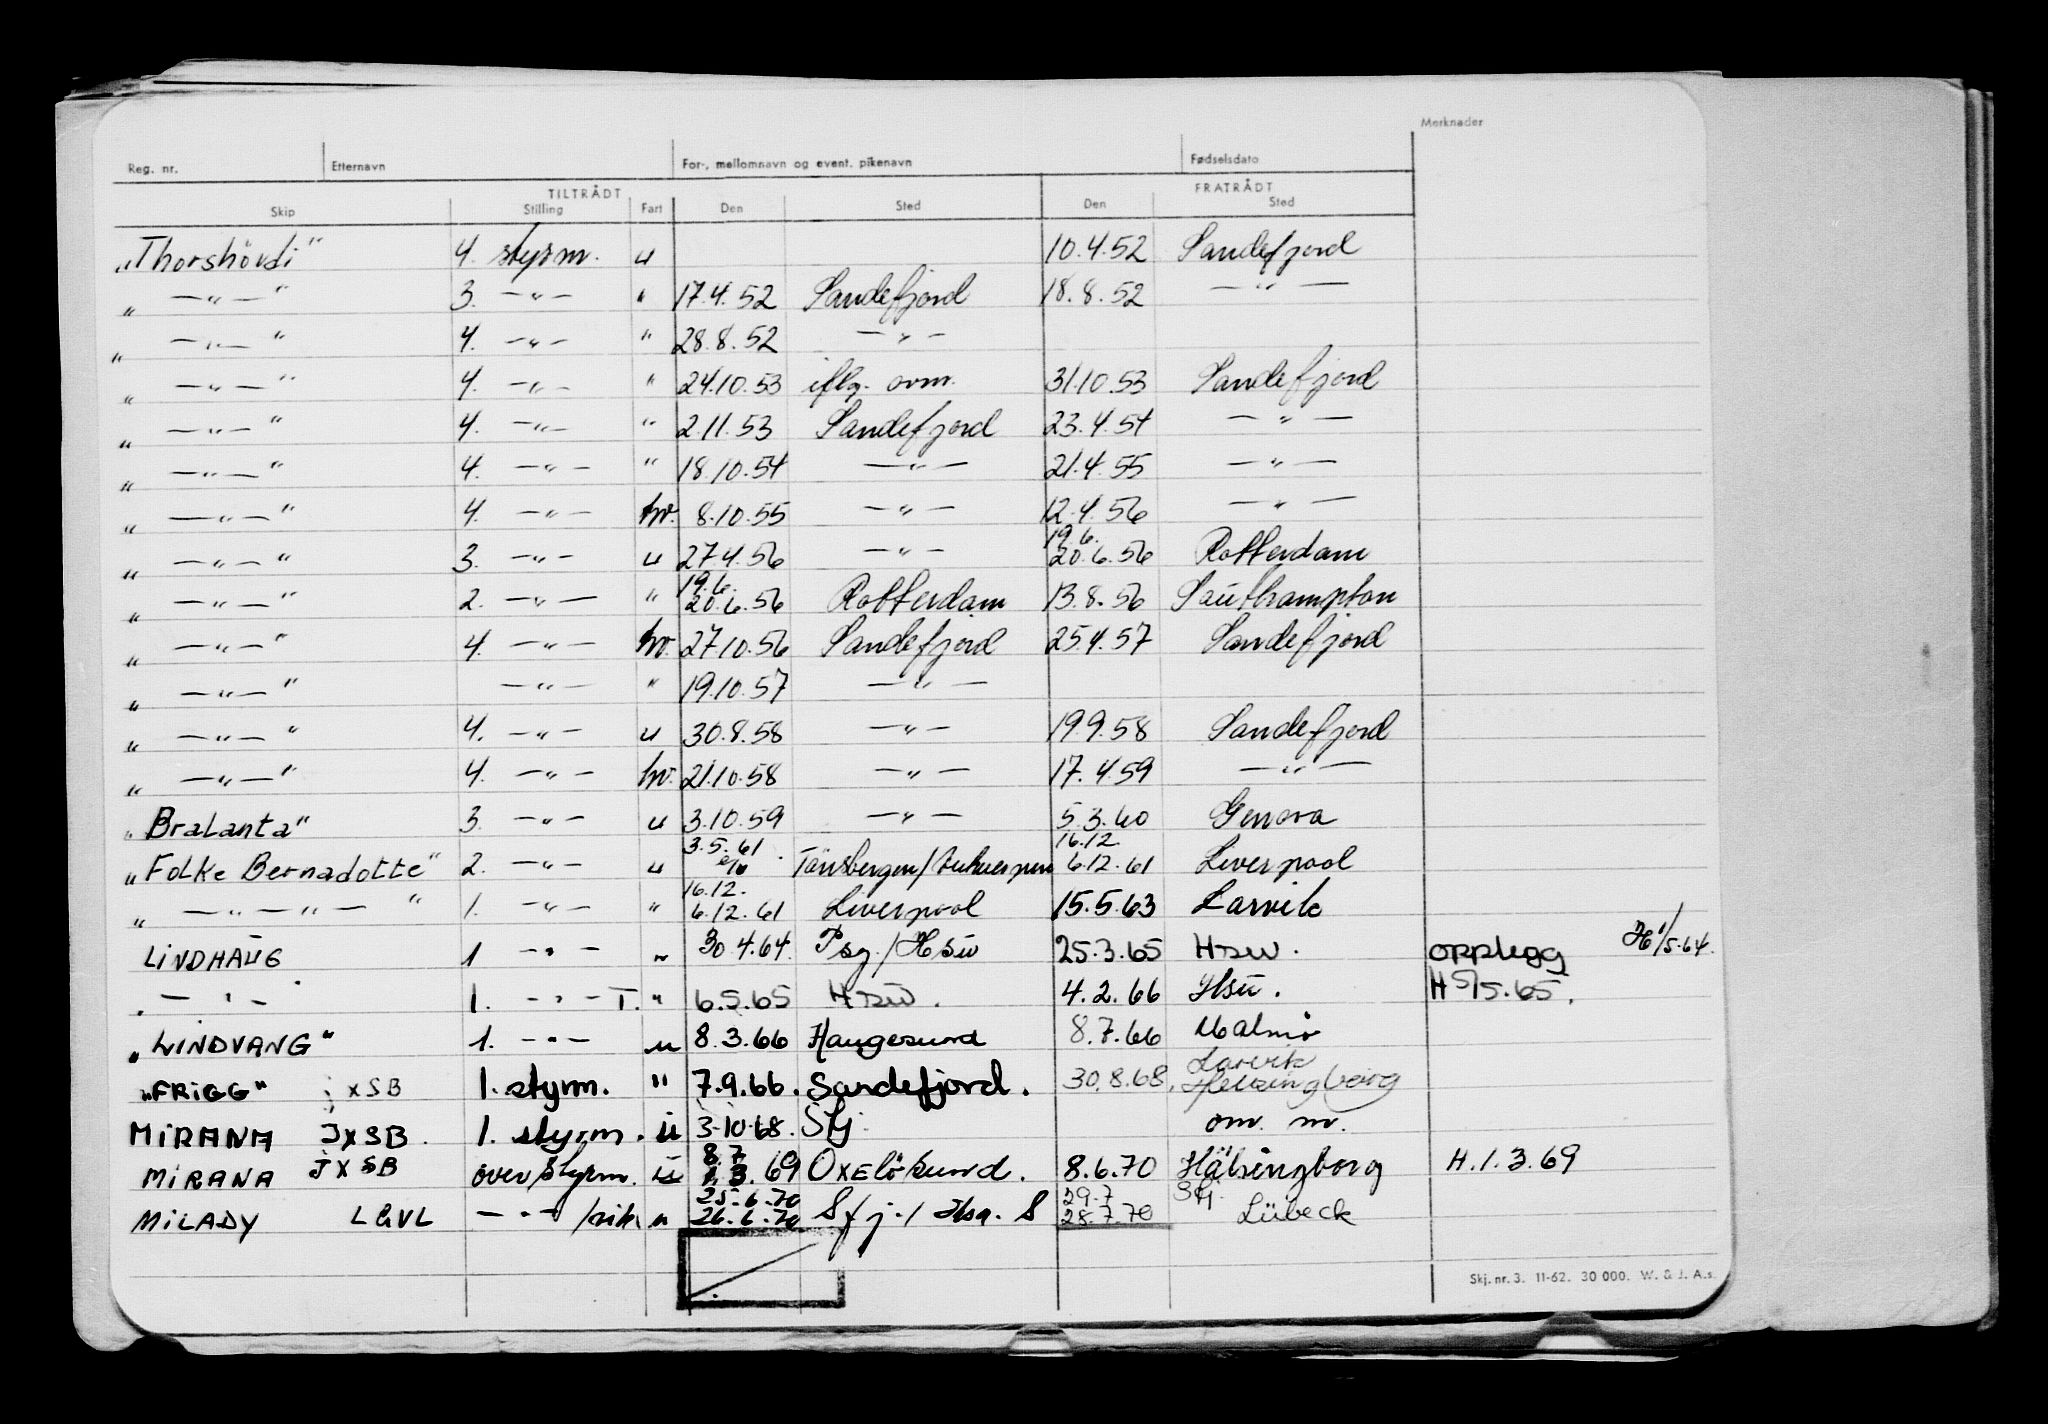 Merknader
Reg. nr. Etternavn For-, mellomnavn og event. pikenavn Fødselsdato
TILTRÅDT FRATRÅDT
Skip Stilling Fart Den Sted Den Sted
„Thorshövdi" 4. styrm. u 10.4.52 Sandefjord
„ —"—" 3. —"— " 17.4.52 Sandefjord 18.8.52 —"—
„ —"—" 4. —"— " 28.8.52 —"—
„ —"—" 4. —"— " 24.10.53 iflg. ovm. 31.10.53 Sandefjord
„ —"—" 4. —"— " 2.11.53 Sandefjord 23.4.54 —"—
„ —"—" 4. —"— " 18.10.54 —"— 21.4.55 —"—
„ —"—" 4. —"— hv. 8.10.55 —"— 12.4.56 —"—
19.6.
„ —"—" 3. —"— u 27.4.56 —"— 20.6.56 Rotterdam
19.6.
„ —"—" 2. —"— " 20.6.56 Rotterdam 13.8.56 Southampton
„ —"—" 4. —"— hv. 27.10.56 Sandefjord 25.4.57 Sandefjord
„ —"—" —"— " 19.10.57 —"—
„ —"—" 4. —"— u 30.8.58 —"— 19.9.58 Sandefjord
„ —"—" 4. —"— hv. 21.10.58 —"— 17.4.59 —"—
„Bralanta" 3. —"— u 3.10.59 —"— 5.3.60 Genova
3.5.61 16.12.
„Folke Bernadotte" 2. —"— u Tönsbergen/Antwerpen 6.12.61 Liverpool
16.12.
„ —"—"— " 1. —"— " 6.12.61 Liverpool 15.5.63 Larvik
LINDHAUG 1 —"— " 30.4.64. Psg./Hsw 25.3.65 Hsw. opplegg H 1/5.64.
—"— 1. —"— T. " 6.5.65 Hsw. 4.2.66 Hsu. H 5/5.65.
„LINDVANG" 1. —"— u 8.3.66 Haugesund 8.7.66 Malmö
Larvik
„FRIGG" j xSB 1. styrm. " 7.9.66. Sandefjord. 30.8.68. Helsingborg
MIRANA JXSB. 1. styrm. u 3.10.68. Sfj. om. m.
8.7
MIRANA JXSB overstyrm. 1.3.69 Oxelösund. 8.6.70 Hälsingborg H.1.3.69
25.6.70 29.7 Sfj.
MILADY L&VL —"— u 26.6.70 Sfj./ S 28.7.70 Lübeck
Skj. nr. 3. 11-62. 30 000. W. & J. A.s.